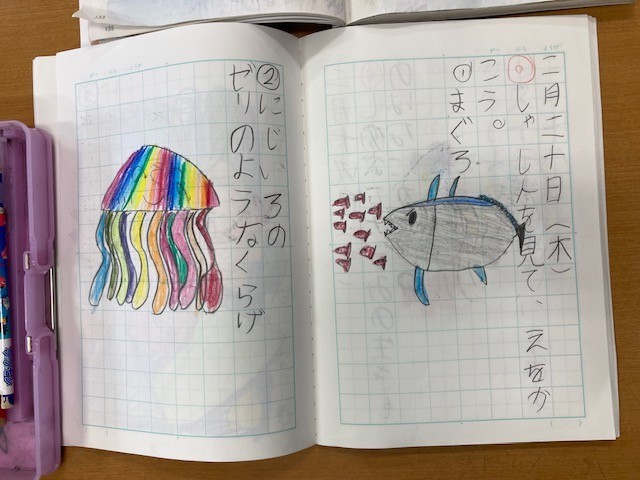 二月二十日（木）
◎しゃしんを見て、えをか
こう。
①まぐろ
②にじいろの
ゼリのようなくらげ